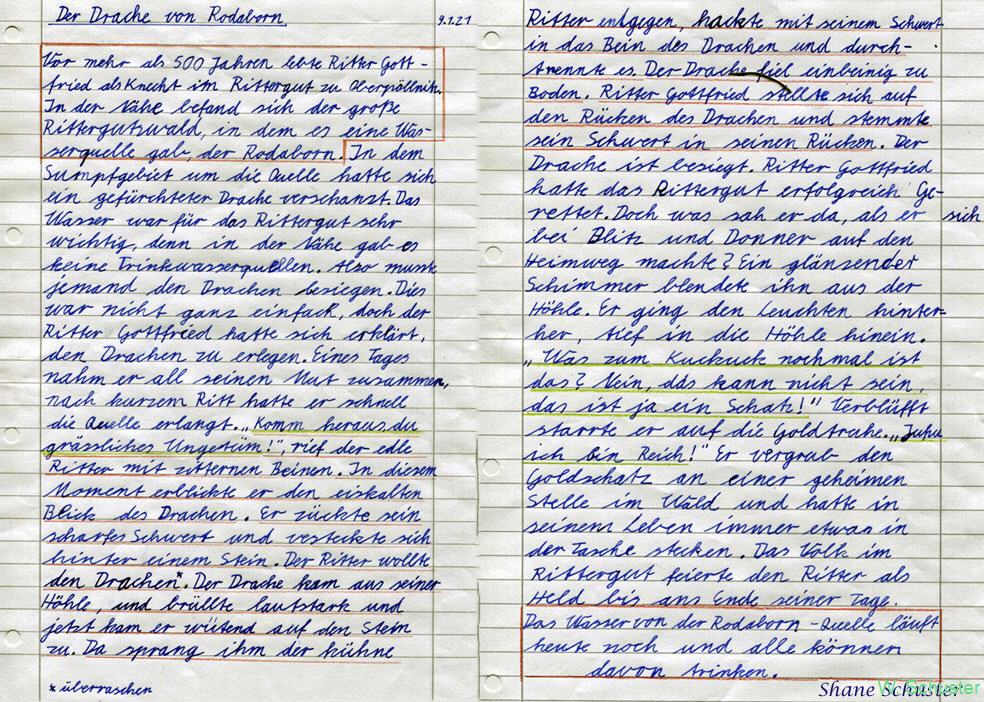 Der Drache von Rodaborn
9.1.21
Vor mehr als 500 Jahren lebte Ritter Gott-
fried als Knecht im Rittergut zu Oberpöllnitz.
In der Nähe befand sich der große
Rittergutswald, in dem es eine Was-
serquelle gab, der Rodaborn. In dem
Sumpfgebiet um die Quelle hatte sich
ein gefürchteter Drache verschanzt. Das
Wasser war für das Rittergut sehr
wichtig, denn in der Nähe gab es
keine Trinkwasserquellen. Also musste
jemand den Drachen besiegen. Dies
war nicht ganz einfach, doch der
Ritter Gottfried hatte sich erklärt,
den Drachen zu erlegen. Eines Tages
nahm er all seinen Mut zusammen,
nach kurzem Ritt hatte er schnell
die Quelle erlangt. „Komm heraus du
grässliches Ungetüm!", rief der edle
Ritter mit zitternen Beinen. In diesem
Moment erblickte er den eiskalten
Blick des Drachen. Er zückte sein
scharfes Schwert und versteckte sich
hinter einem Stein. Der Ritter wollte
den Drachen*. Der Drache kam aus seiner
Höhle, und brüllte lautstark und
jetzt kam er wütend auf den Stein
zu. Da sprang ihm der kühne
* überraschen
Ritter entgegen, hackte mit seinem Schwert
in das Bein des Drachen und durch-
trennte es. Der Drache fiel einbeinig zu
Boden. Ritter Gottfried stellte sich auf
den Rücken des Drachen und stemmte
sein Schwert in seinen Rücken. Der
Drache ist besiegt. Ritter Gottfried
hatte das Rittergut erfolgreich Ge-
rettet. Doch was sah er da, als er sich
bei Blitz und Donner auf den
Heimweg machte? Ein glänzender
Schimmer blendete ihn aus der
Höhle. Er ging den Leuchten hinter-
her, tief in die Höhle hinein.
„Was zum Kuckuck nochmal ist
das? Nein, das kann nicht sein,
das ist ja ein Schatz!" Verblüfft
starrte er auf die Goldtruhe. „Juhu
ich bin Reich!" Er vergrub den
Goldschatz an einer geheimen
Stelle im Wald und hatte in
seinem Leben immer etwas in
der Tasche stecken. Das Volk im
Rittergut feierte den Ritter als
Held bis ans Ende seiner Tage.
Das Wasser von der Rodaborn-Quelle läuft
heute noch und alle können
davon trinken.
Shane Schuster
W. Schuster